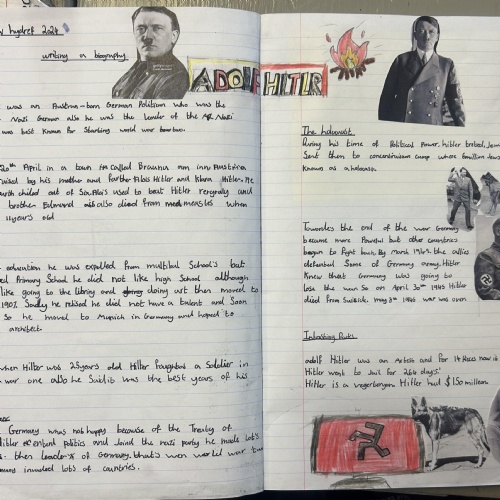 hydref 2024
writing a biography
ADOLF HITLR
was an Austria-born German Politican who was the
Nazi German also he was the leader of the Nazi
was best known for starting world war two.
20th April in a town called Braunau am inn Austria
raised by his mother and farther Alois Hitler and Klara Hitler. He
child out of six. Alois used to beat Hitler regulary and
brother Edmund also died from measles when
11 years old
education he was expelled from School's but
Primary School he did not like high School although
like going to the library and doing art then moved to
1907. Sadley he he did not have a talent and Soon
So he moved to Munich in Germany and hoped to
architect.
when Hitler was 25 years old Hitler a Soldier in
war one also he Said it was the best years of his
Germany was not happy because of the Treaty of
Hitler entered politics and Joind the nazi party he made lot's
then leader of Germany. that's when world war
invaded lot's of countries.
The holocaust
During his time of Political Power, hitler
Sent them to camp where
known as a holocause.
Towardes the end of the war Germany
became more Powerful but othe countries
begun to fight back. By the allies
defeated Some of Germany army. Hitler
knew that Germany was going to
lose the war So on April 30th 1945 Hitler
died from Suicide. may 3rd 1945 war was over
Intresting Facts
adolf Hitler was an Artist and for 14
Hitler went to Jail for 264 days!
Hitler is a Hitler had $150 million